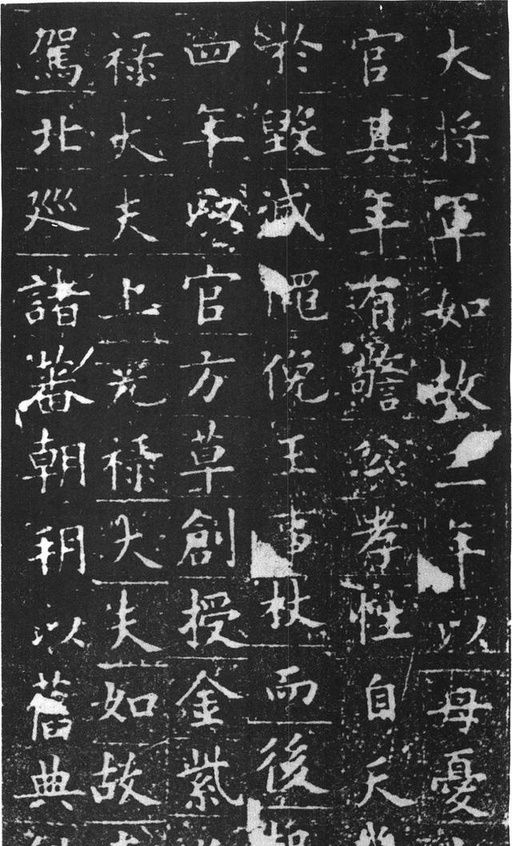 大将軍如故二年以母憂
官其年有警公孝性自天
於毀滅俛王事杖而後
四年官方草創授金紫
祿大夫上光祿大夫如故
駕北巡諸蕃朝以舊典